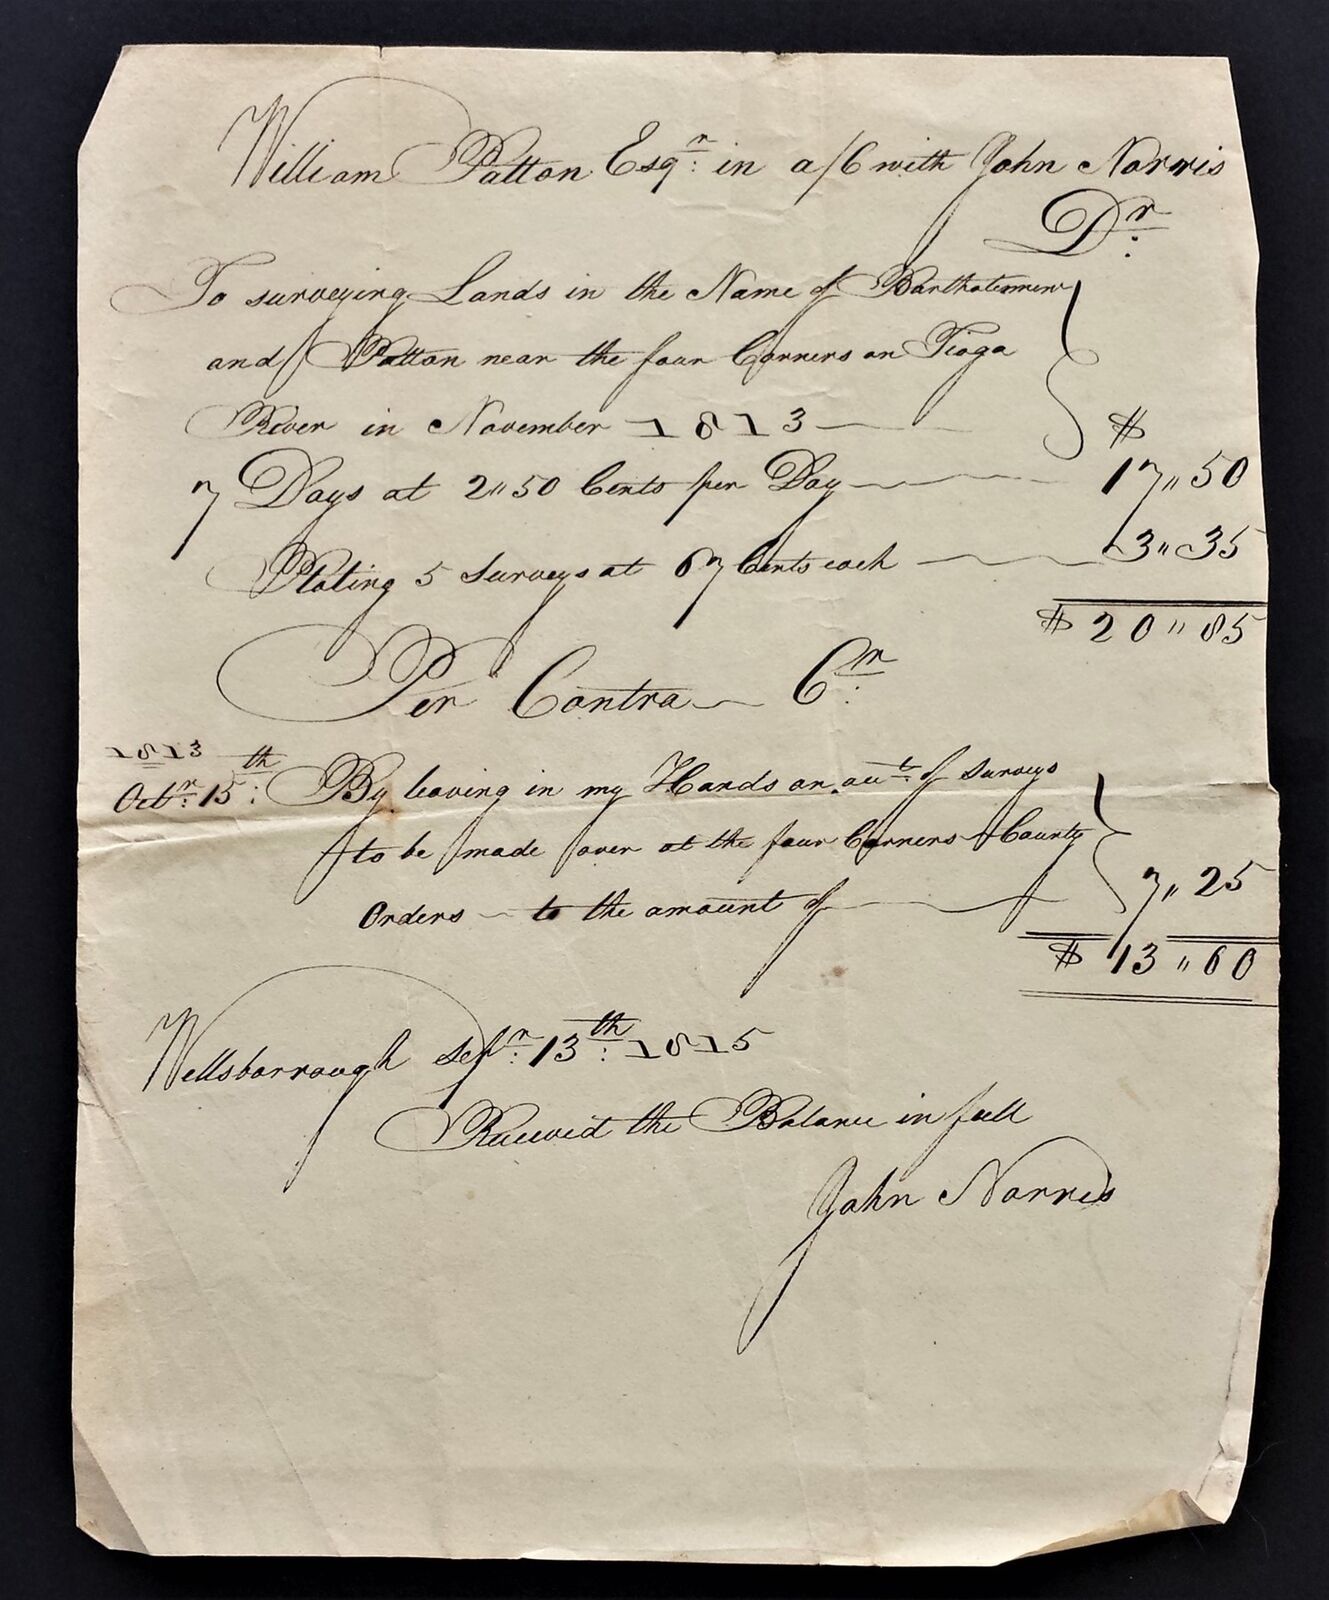 William Patton Esqr: in a/C with John Norris
Dr:
To surveying Lands in the Name of Bartholemew
and Patton near the four Corners on Tioga
River in November 1813 $
7 Days at 2"50 Cents per Day 17"50
Plating 5 Surveys at 67 Cents each 3"35
$ 20"85
Per Contra Cr:
1813
Octr: 15th: By leaving in my Hands on acct: of surveys
to be made over at the four Corners County
Orders to the amount of 7"25
$ 13"60
Wellsborrough Sepr: 13th: 1815
Received the Balance in full
John Norris